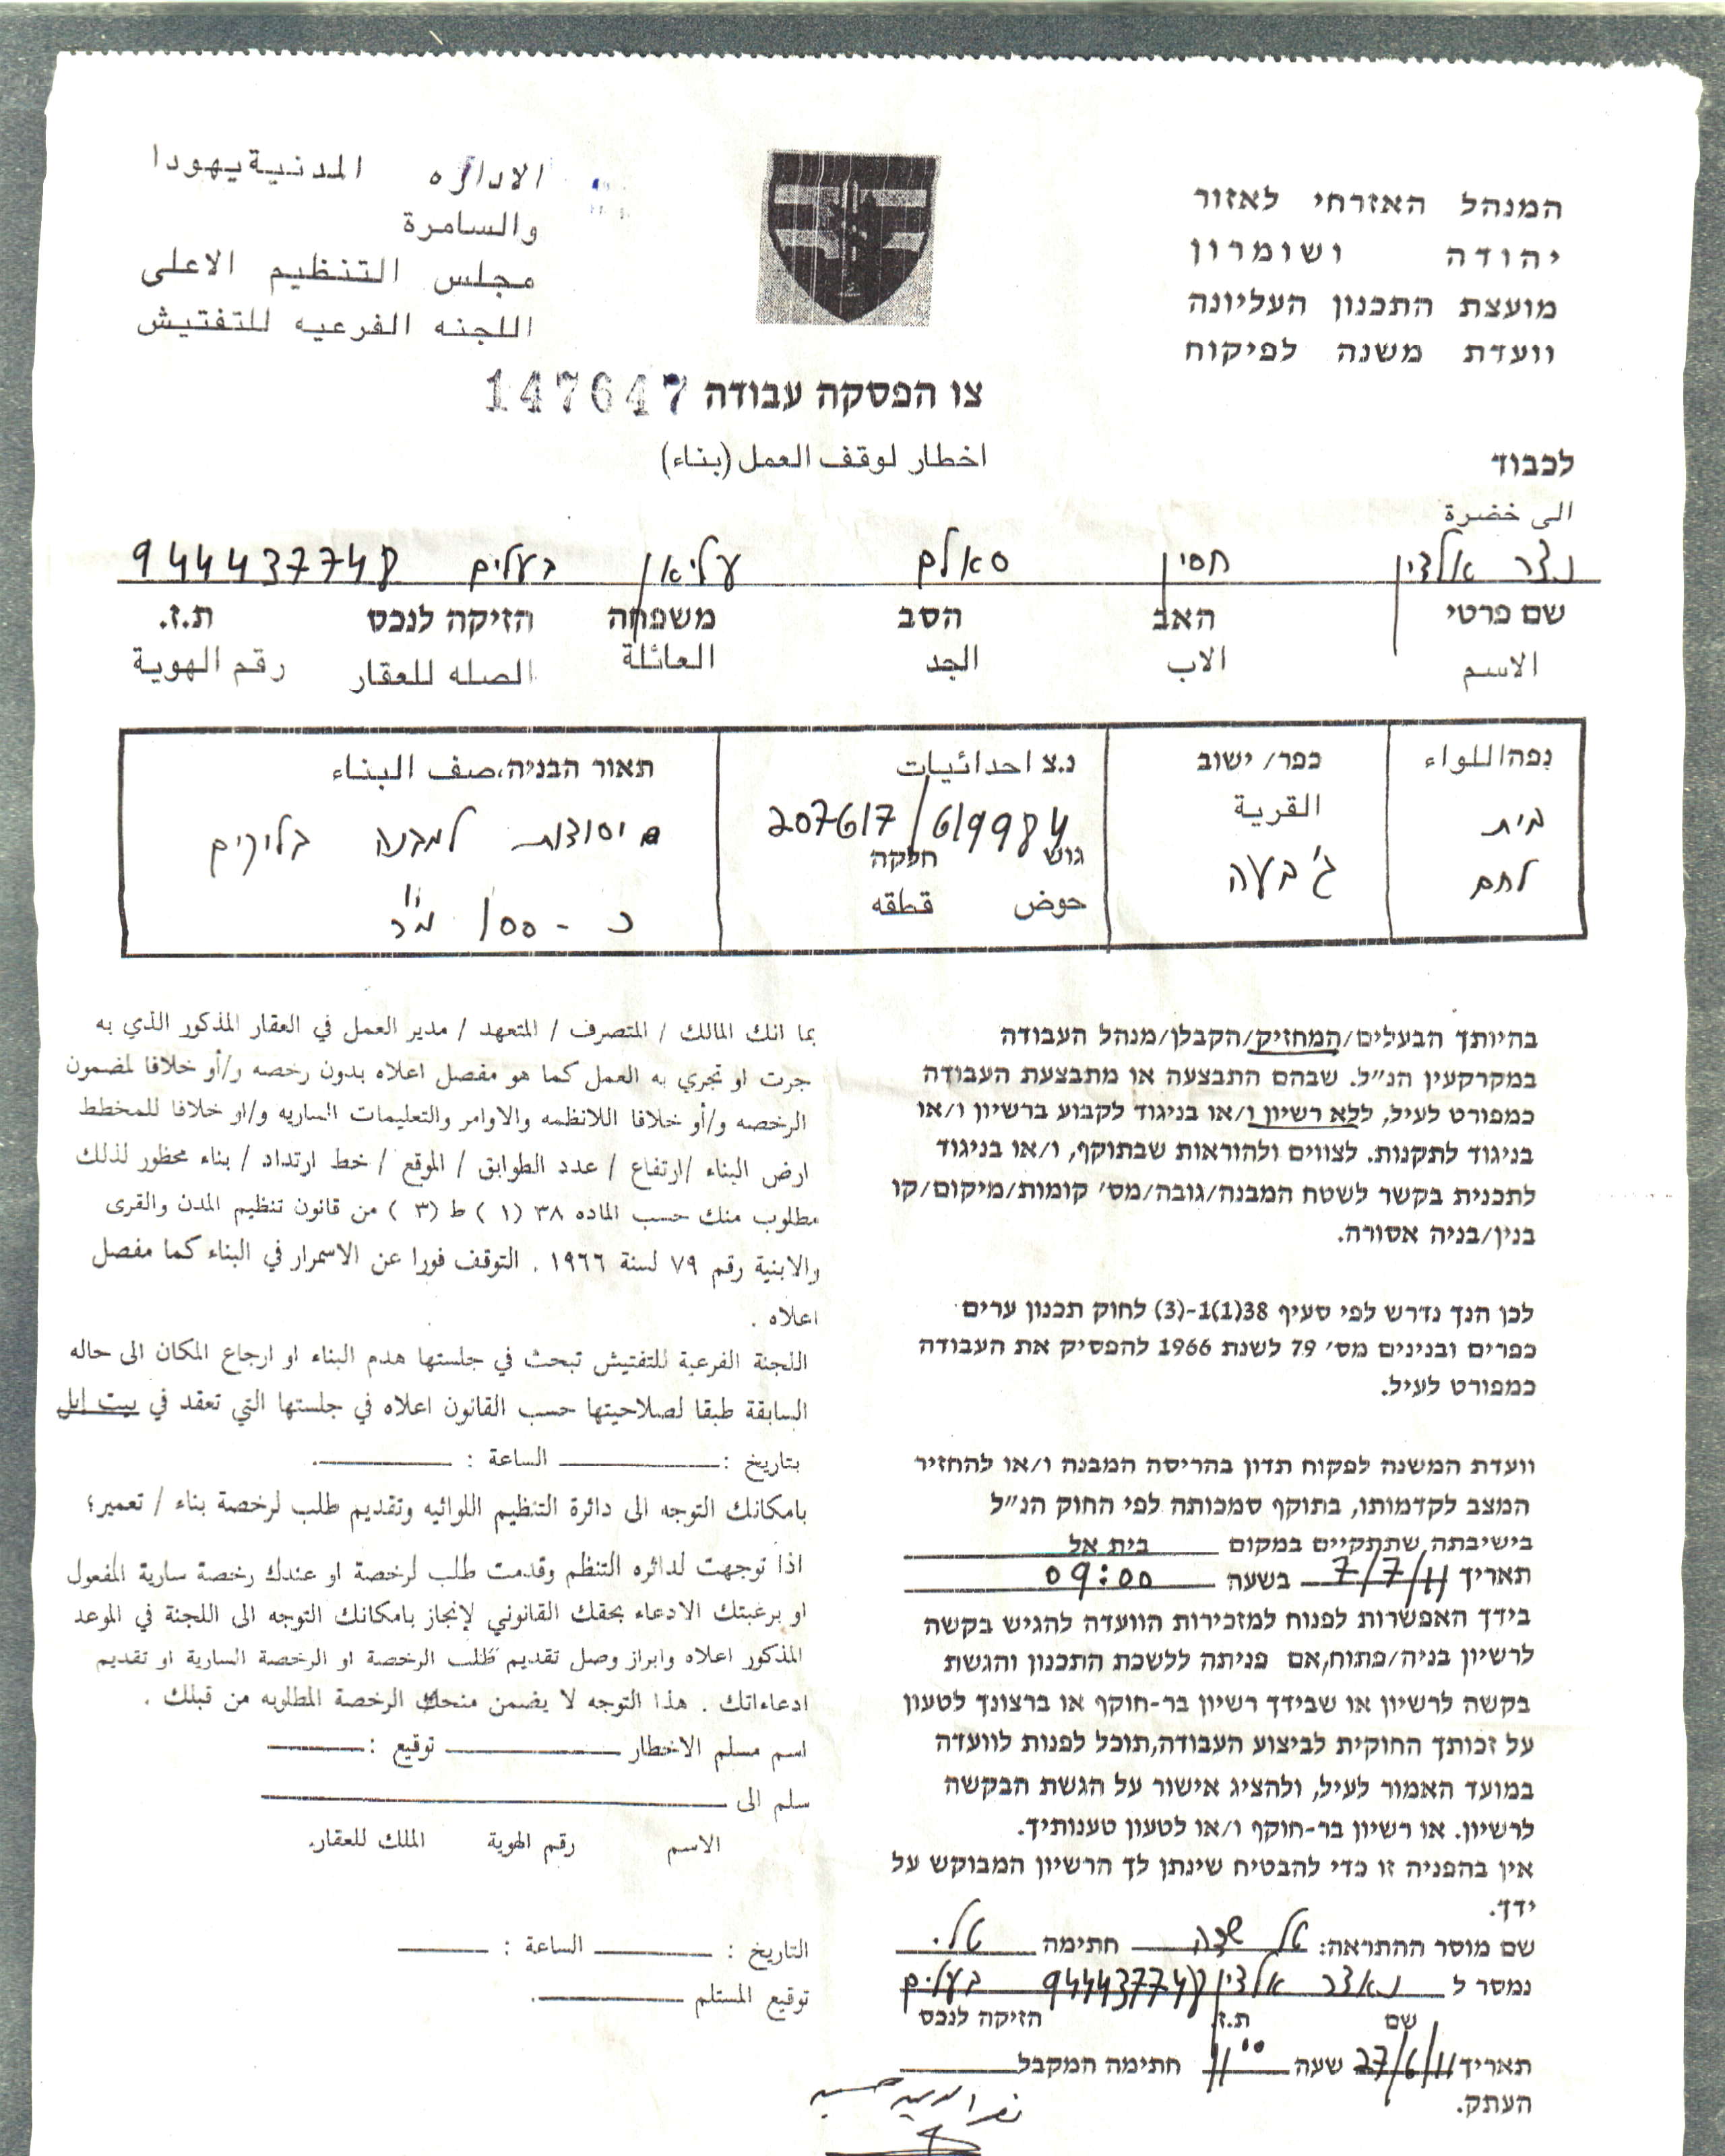 המנהל האזרחי לאזור
יהודה ושומרון
מועצת התכנון העליונה
וועדת משנה לפיקוח
الاداره المدنية يهودا
والسامرة
مجلس التنظيم الاعلى
اللجنه الفرعيه للتفتيش
צו הפסקה עבודה 147647
اخطار لوقف العمل (بناء)
לכבוד
الى خضرة
נצר אלדין חסין סאלם עליאן בעלים 944437748
שם פרטי האב הסב משפחה הזיקה לנכס ת.ז.
الاسم الاب الجد العائلة الصله للعقار رقم الهوية
נפה اللواء
בית
לחם
כפר/ ישוב
القرية
ג'בעה
נ.צ احداثيات
207617/619984
גוש חלקה
حوض قطقه
תאור הבניה، صف البناء
יסודות למבנה בלוקים
כ - 100 מ"ר
בהיותך הבעלים/המחזיק/הקבלן/מנהל העבודה
במקרקעין הנ"ל. שבהם התבצעה או מתבצעת העבודה
כמפורט לעיל, ללא רשיון ו/או בניגוד לקבוע ברשיון ו/או
בניגוד לתקנות. לצווים ולהוראות שבתוקף, ו/או בניגוד
לתכנית בקשר לשטח המבנה/גובה/מס' קומות/מיקום/קו
בנין/בניה אסורה.
לכן הנך נדרש לפי סעיף 38(1)1-(3) לחוק תכנון ערים
כפרים ובנינים מס' 79 לשנת 1966 להפסיק את העבודה
כמפורט לעיל.
וועדת המשנה לפקוח תדון בהריסה המבנה ו/או להחזיר
המצב לקדמותו, בתוקף סמכותה לפי החוק הנ"ל
בישיבתה שתתקיים במקום בית אל
תאריך 7/7/11 בשעה 09:00
בידך האפשרות לפנוח למזכירות הוועדה להגיש בקשה
לרשיון בניה/פתוח,אם פניתה ללשכת התכנון והגשת
בקשה לרשיון או שבידך רשיון בר-חוקף או ברצונך לטעון
על זכותך החוקית לביצוע העבודה,תוכל לפנות לוועדה
במועד האמור לעיל, ולהציג אישור על הגשת הבקשה
לרשיון. או רשיון בר-חוקף ו/או לטעון טענותיך.
אין בהפניה זו כדי להבטיח שינתן לך הרשיון המבוקש על
ידך.
שם מוסר ההתראה: טל חתימה טל.
נמסר ל נאצר אלדין 944437748 בעלים
שם ת.ז. הזיקה לנכס
תאריך 27/6/11 שעה 11:00 חתימה המקבל
העתק.
بما انك المالك / المتصرف / المتعهد / مدير العمل في العقار المذكور الذي به
جرت او تجري به العمل كما هو مفصل اعلاه بدون رخصه و/أو خلافا لمضمون
الرخصه و/أو خلافا اللانظمه والاوامر والتعليمات الساريه و/او خلافا للمخطط
ارض البناء /ارتفاع / عدد الطوابق / الموقع / خط ارتداد / بناء محظور لذلك
مطلوب منك حسب الماده ٣٨ (١ ) ط (٣ ) من قانون تنظيم المدن والقرى
والابنية رقم ٧٩ لسنة ١٩٦٦ . التوقف فورا عن الاسمرار في البناء كما مفصل
اعلاه .
اللجنة الفرعية للتفتيش تبحث في جلستها هدم البناء او ارجاع المكان الى حاله
السابقة طبقا لصلاحيتها حسب القانون اعلاه في جلستها التي تعقد في بيت إيل
بتاريخ : الساعة : .
بامكانك التوجه الى دائرة التنظيم اللوائيه وتقديم طلب لرخصة بناء / تعمير؛
اذا توجهت لدائره التنظم وقدمت طلب لرخصة او عندك رخصة سارية المفعول
او برغبتك الادعاء بحقك القانوني لإنجاز بامكانك التوجه الى اللجنة في الموعد
المذكور اعلاه وابراز وصل تقديم طلب الرخصة او الرخصة السارية او تقديم
ادعاءاتك . هذا التوجه لا يضمن منحك الرخصة المطلوبه من قبلك .
اسم مسلم الاخطار توقيع :
سلم الى
الاسم رقم الهوية الملك للعقار.
التاريخ : الساعة :
توقيع المستلم .
نصر الدين حسين